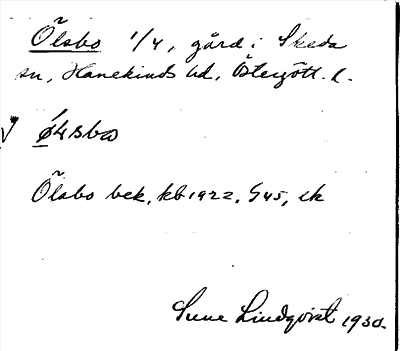 Ölsbo 1/4, gård i Skeda
sn, Hanekinds hd, Östergötl. l.
Ölsbo bek, kb 1922, G45, ek
Sune Lindqvist 1930.